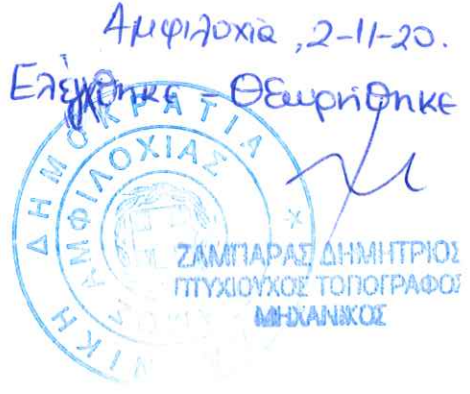 Αμφιλοχία, 2-11-20.
Ελέγχθηκε - Θεωρήθηκε
ΔΗΜΟΚΡΑΤΙΑ
ΑΜΦΙΛΟΧΙΑΣ
ΖΑΜΠΑΡΑΣ ΔΗΜΗΤΡΙΟΣ
ΠΤΥΧΙΟΥΧΟΣ ΤΟΠΟΓΡΑΦΟΣ
ΜΗΧΑΝΙΚΟΣ